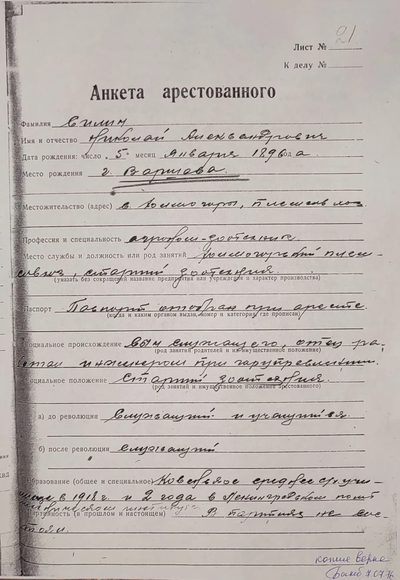 Лист № 21
К делу №
Анкета арестованного
Фамилия Силин
Имя и отчество Николай Александрович
Дата рождения: число 5 месяц Января 1896 года
Место рождения г. Варшава
Местожительство (адрес) с. Холмогоры,
Профессия и специальность агроном-зоотехник
Место службы и должность или род занятий Холмогорский племсовхоз, старший зоотехник
(указать без сокращений название предприятия или учреждения и характер производства)
Паспорт Паспорт отобран при аресте
(когда и каким органом выдан, номер и категория, где прописан)
социальное происхождение сын служащего, отец ра-
ботал инженером при
(род занятий родителей и их имущественное положение)
социальное положение Старший зоотехник
(род занятий и имущественное положение арестованного)
а) до революции Служащий и учащийся
б) после революции служащий
Образование (общее и специальное) среднее
в 1918 г. и 2 года в Ленинградском
Партийность (в прошлом и настоящем) В партиях не сос-
тоял.
копия верна